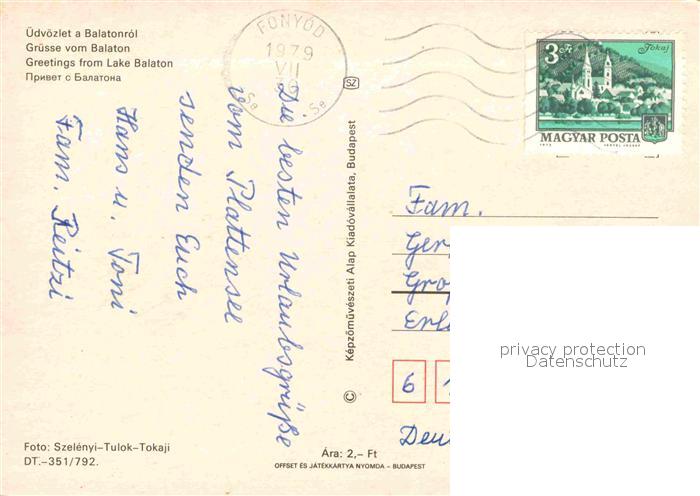 Üdvözlet a Balatonról
Grüsse vom Balaton
Greetings from Lake Balaton
Привет с Балатона
FONYÓD
1979
VII
3 Ft
Tokaj
MAGYAR POSTA
SZ
Die besten Urlaubsgrüße
vom Plattensee
senden Euch
Hans u. Toni
Fam. Reitzi
Képzőművészeti Alap Kiadóvállalata, Budapest
©
Fam.
Ger
Gro
Erl
6
Deu
privacy protection
Datenschutz
Foto: Szelényi–Tulok–Tokaji
DT.–351/792.
Ára: 2,– Ft
OFFSET ÉS JÁTÉKKÁRTYA NYOMDA – BUDAPEST